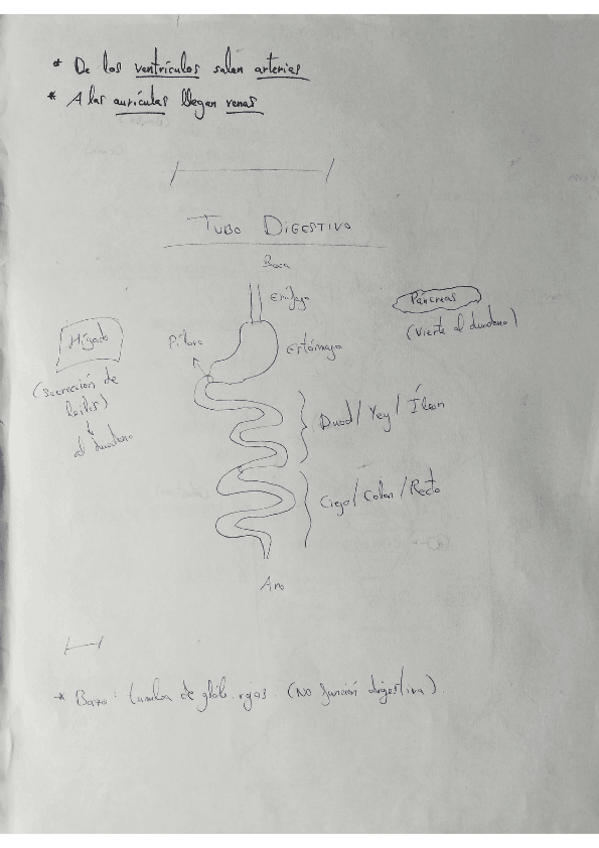 * De los ventrículos salen arterias
* A las aurículas llegan venas
TUBO DIGESTIVO
Boca
Esófago
Páncreas
(Vierte al duodeno)
Hígado
Píloro
Estómago
(Secreción de
bilis)
al duodeno
Duod/Yey/Íleon
Ciego/Colon/Recto
Ano
* Bazo: de glób. rojos. (No función digestiva).